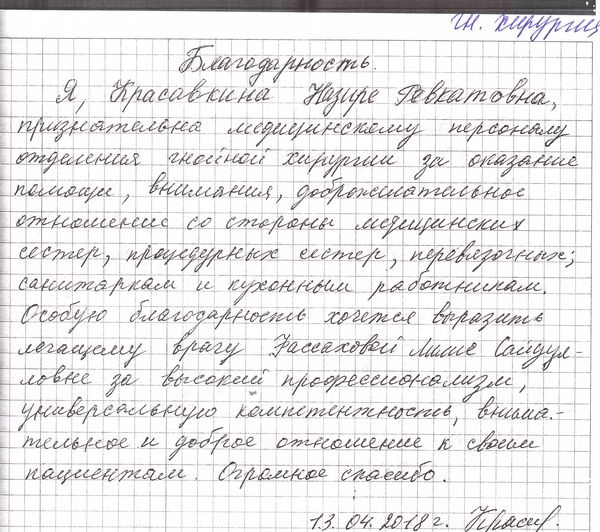 гн. хирургия
Благодарность.
Я, Красавкина Назире Гавкатовна,
признательна медицинскому персоналу
отделения гнойной хирургии за оказание
помощи, внимания, доброжелательное
отношение со стороны медицинских
сестер, процедурных сестер, перевязочных;
санитаркам и кухонным работникам.
Особую благодарность хочется выразить
лечащему врачу Хассаховой Лилие Сайдул-
ловне за высокий профессионализм,
универсальную компетентность, внима-
тельное и доброе отношение к своим
пациентам. Огромное спасибо.
13.04.2018 г. Красав.